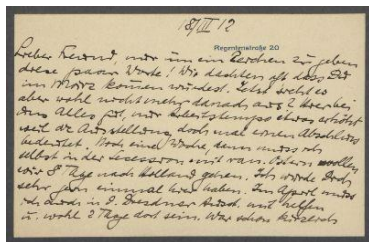 18/III 12
Regentenstraße 20
Lieber Freund, nur um ein Zeichen zu geben
diese paar Worte! Wir dachten oft dass Du
im März kommen würdest. Jetzt sieht es
aber wohl nicht mehr danach aus? Hierbei
uns Alles gut, nur Arbeitstempo etwas erhöht
weil die Ausstellung doch mal einen Abschluss
bedeutet. Noch eine Woche, dann muss ich
selbst in der Secession mit ran. Ostern wollen
wir 8 Tage nach Holland gehen. Ich würde Dich
sehr gern einmal hier haben. Im April muss
ich auch in d. Dresdner Ausst. mit helfen
u. wohl 2 Tage dort sein. War schon kürzlich